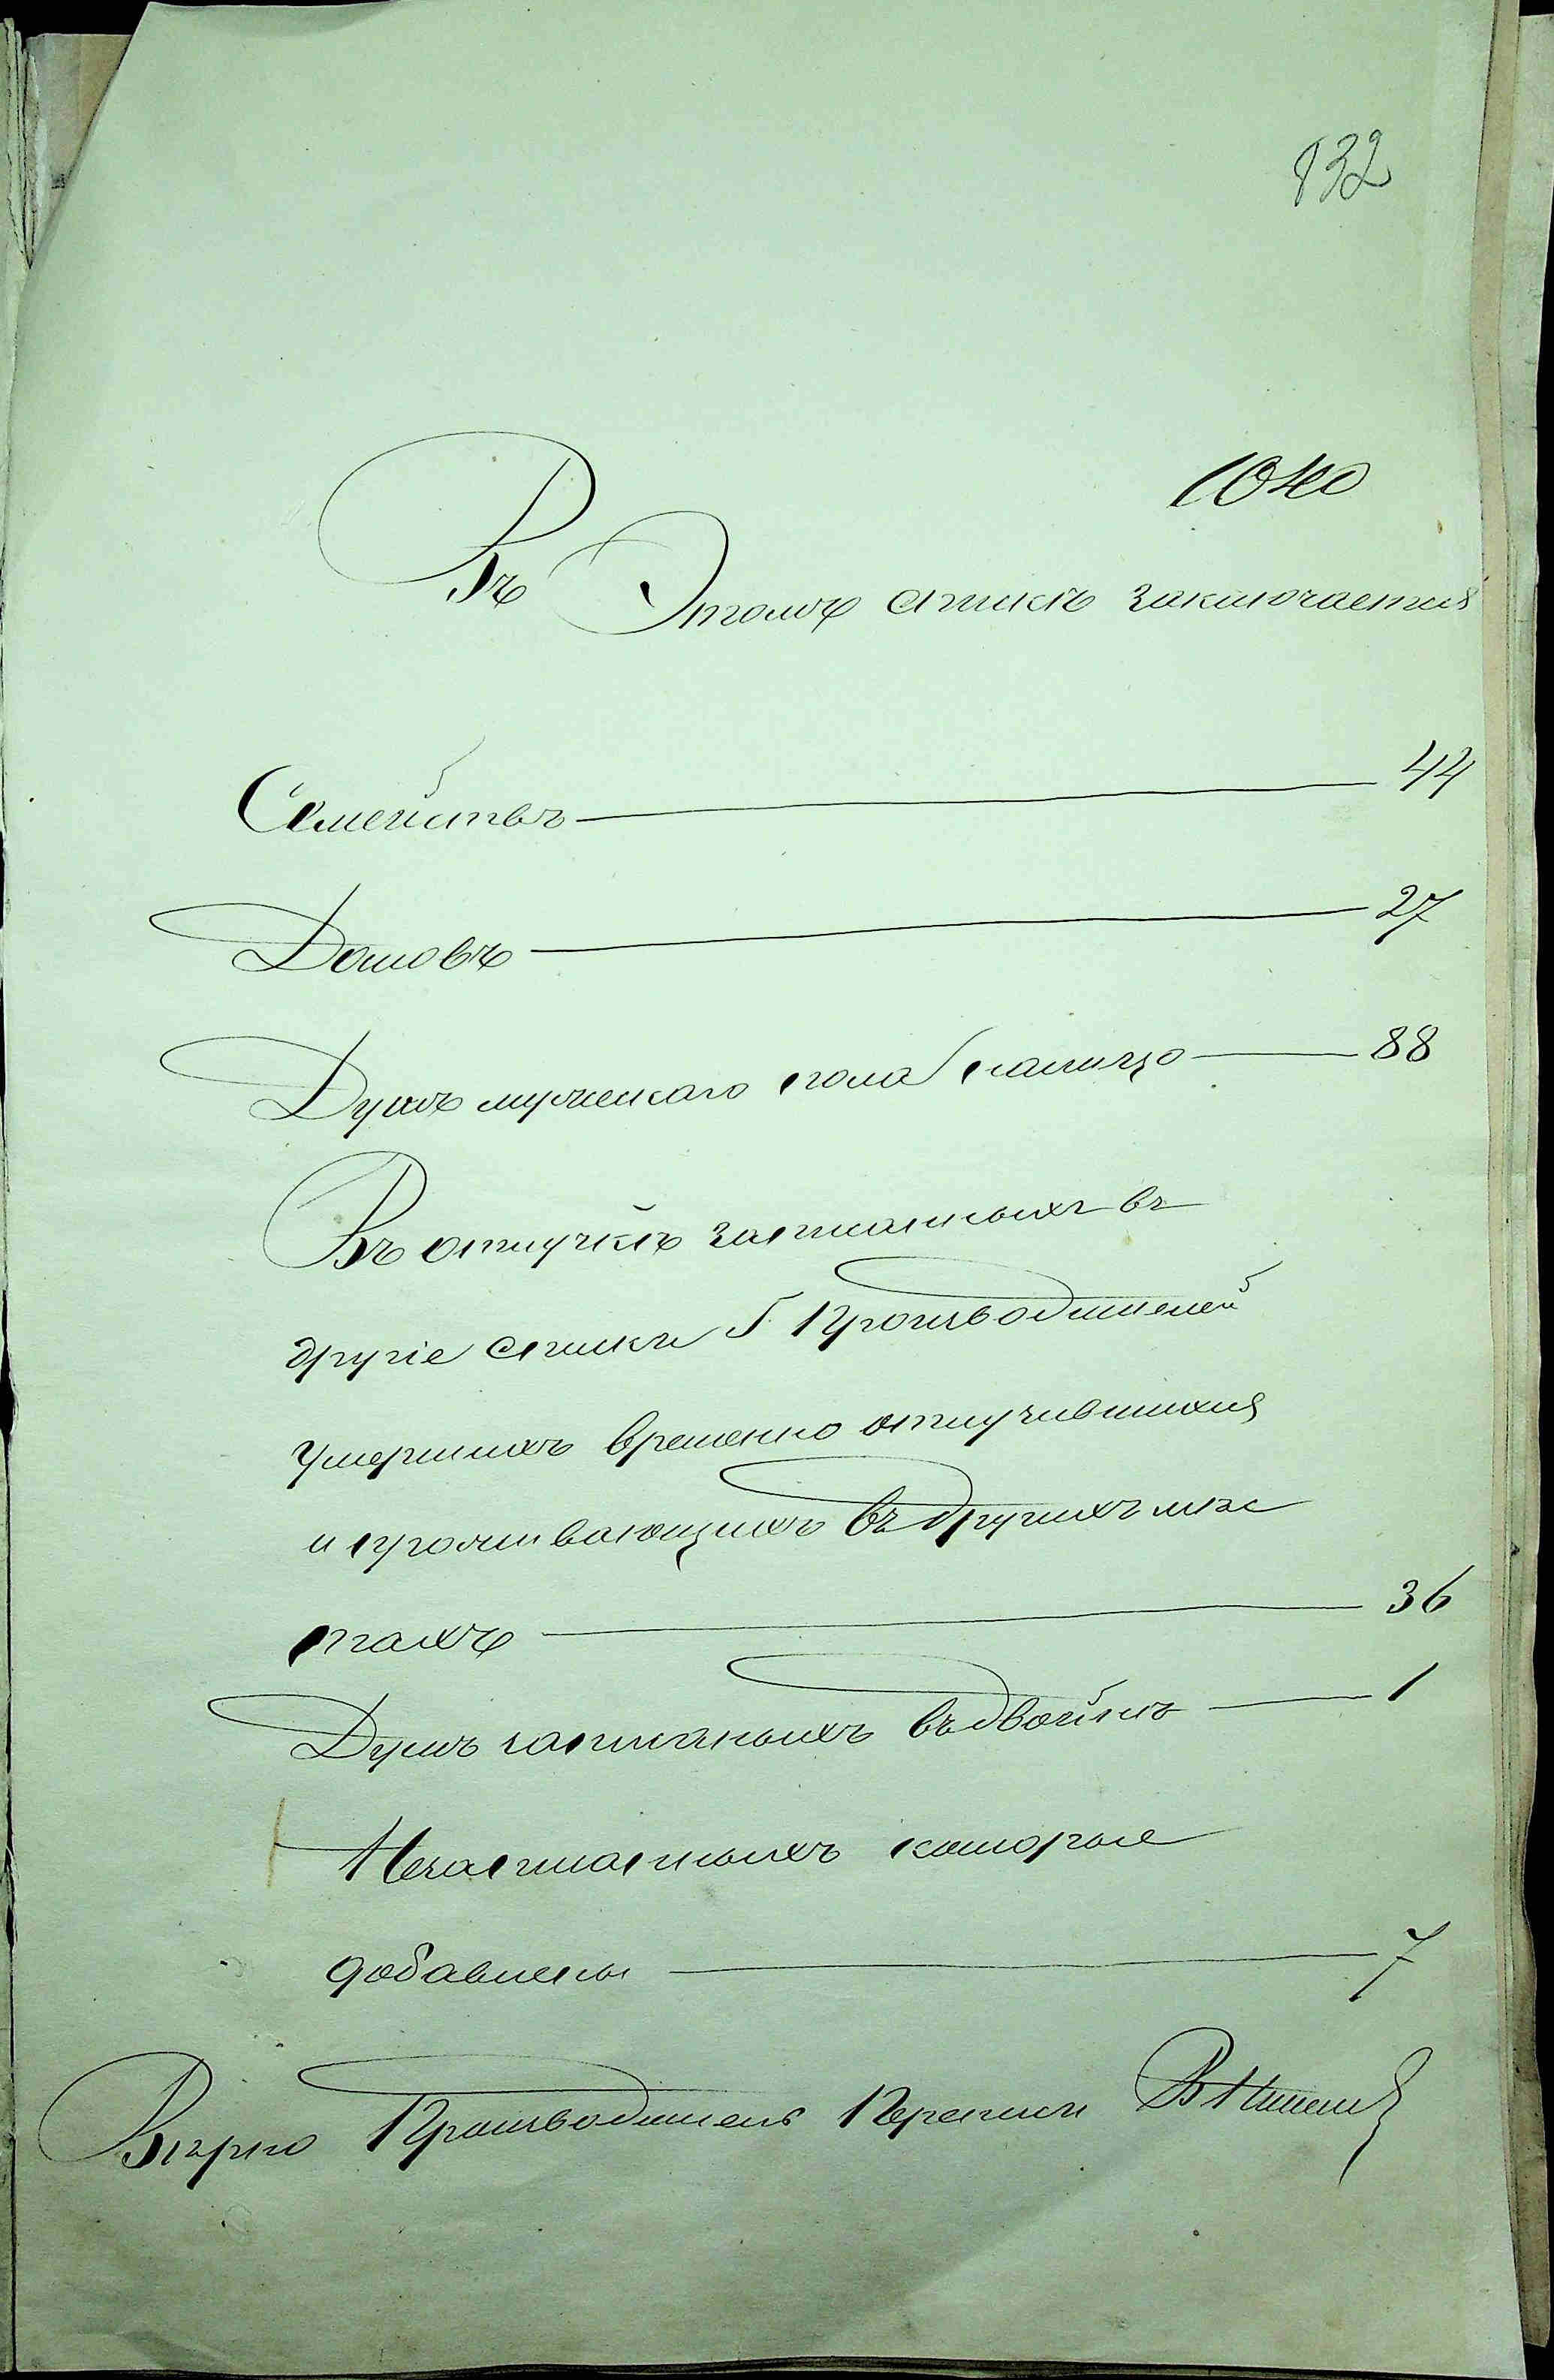 832
1040
Въ Этомъ спискѣ заключается
Семействъ 44
Домовъ 27
Душъ мужескаго пола налицо 88
Въ отлучкѣ записанныхъ въ
другіе списки Производителей
умершихъ временно отлучившихся
и проживающихъ въ другихъ мѣс
тахъ 36
Душъ записаныхъ въ двойнѣ 1
Незаписанныхъ которые
добавлены 7
Вѣрно Производитель Переписи